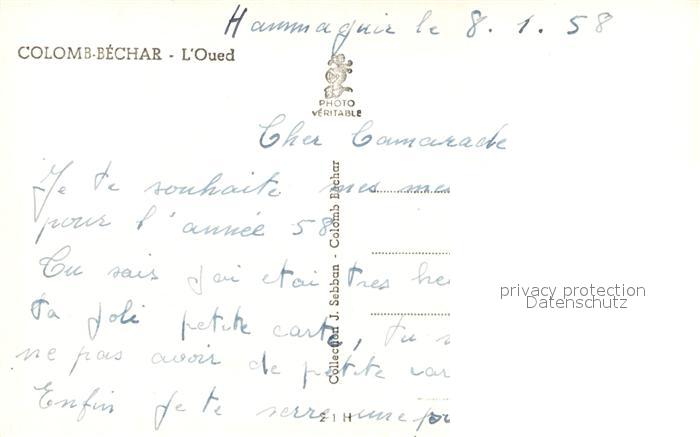 Hammaguir le 8.1.58
COLOMB-BÉCHAR - L'Oued
PHOTO
VÉRITABLE
Cher Camarade
Je te souhaite mes me
pour l'année 58
Tu sais j'ai etai tres he
ta joli petite carte, tu
ne pas avoir de petite car
Enfin je te serre une
Collection J. Sebban - Colomb Béchar
21H
privacy protection
Datenschutz